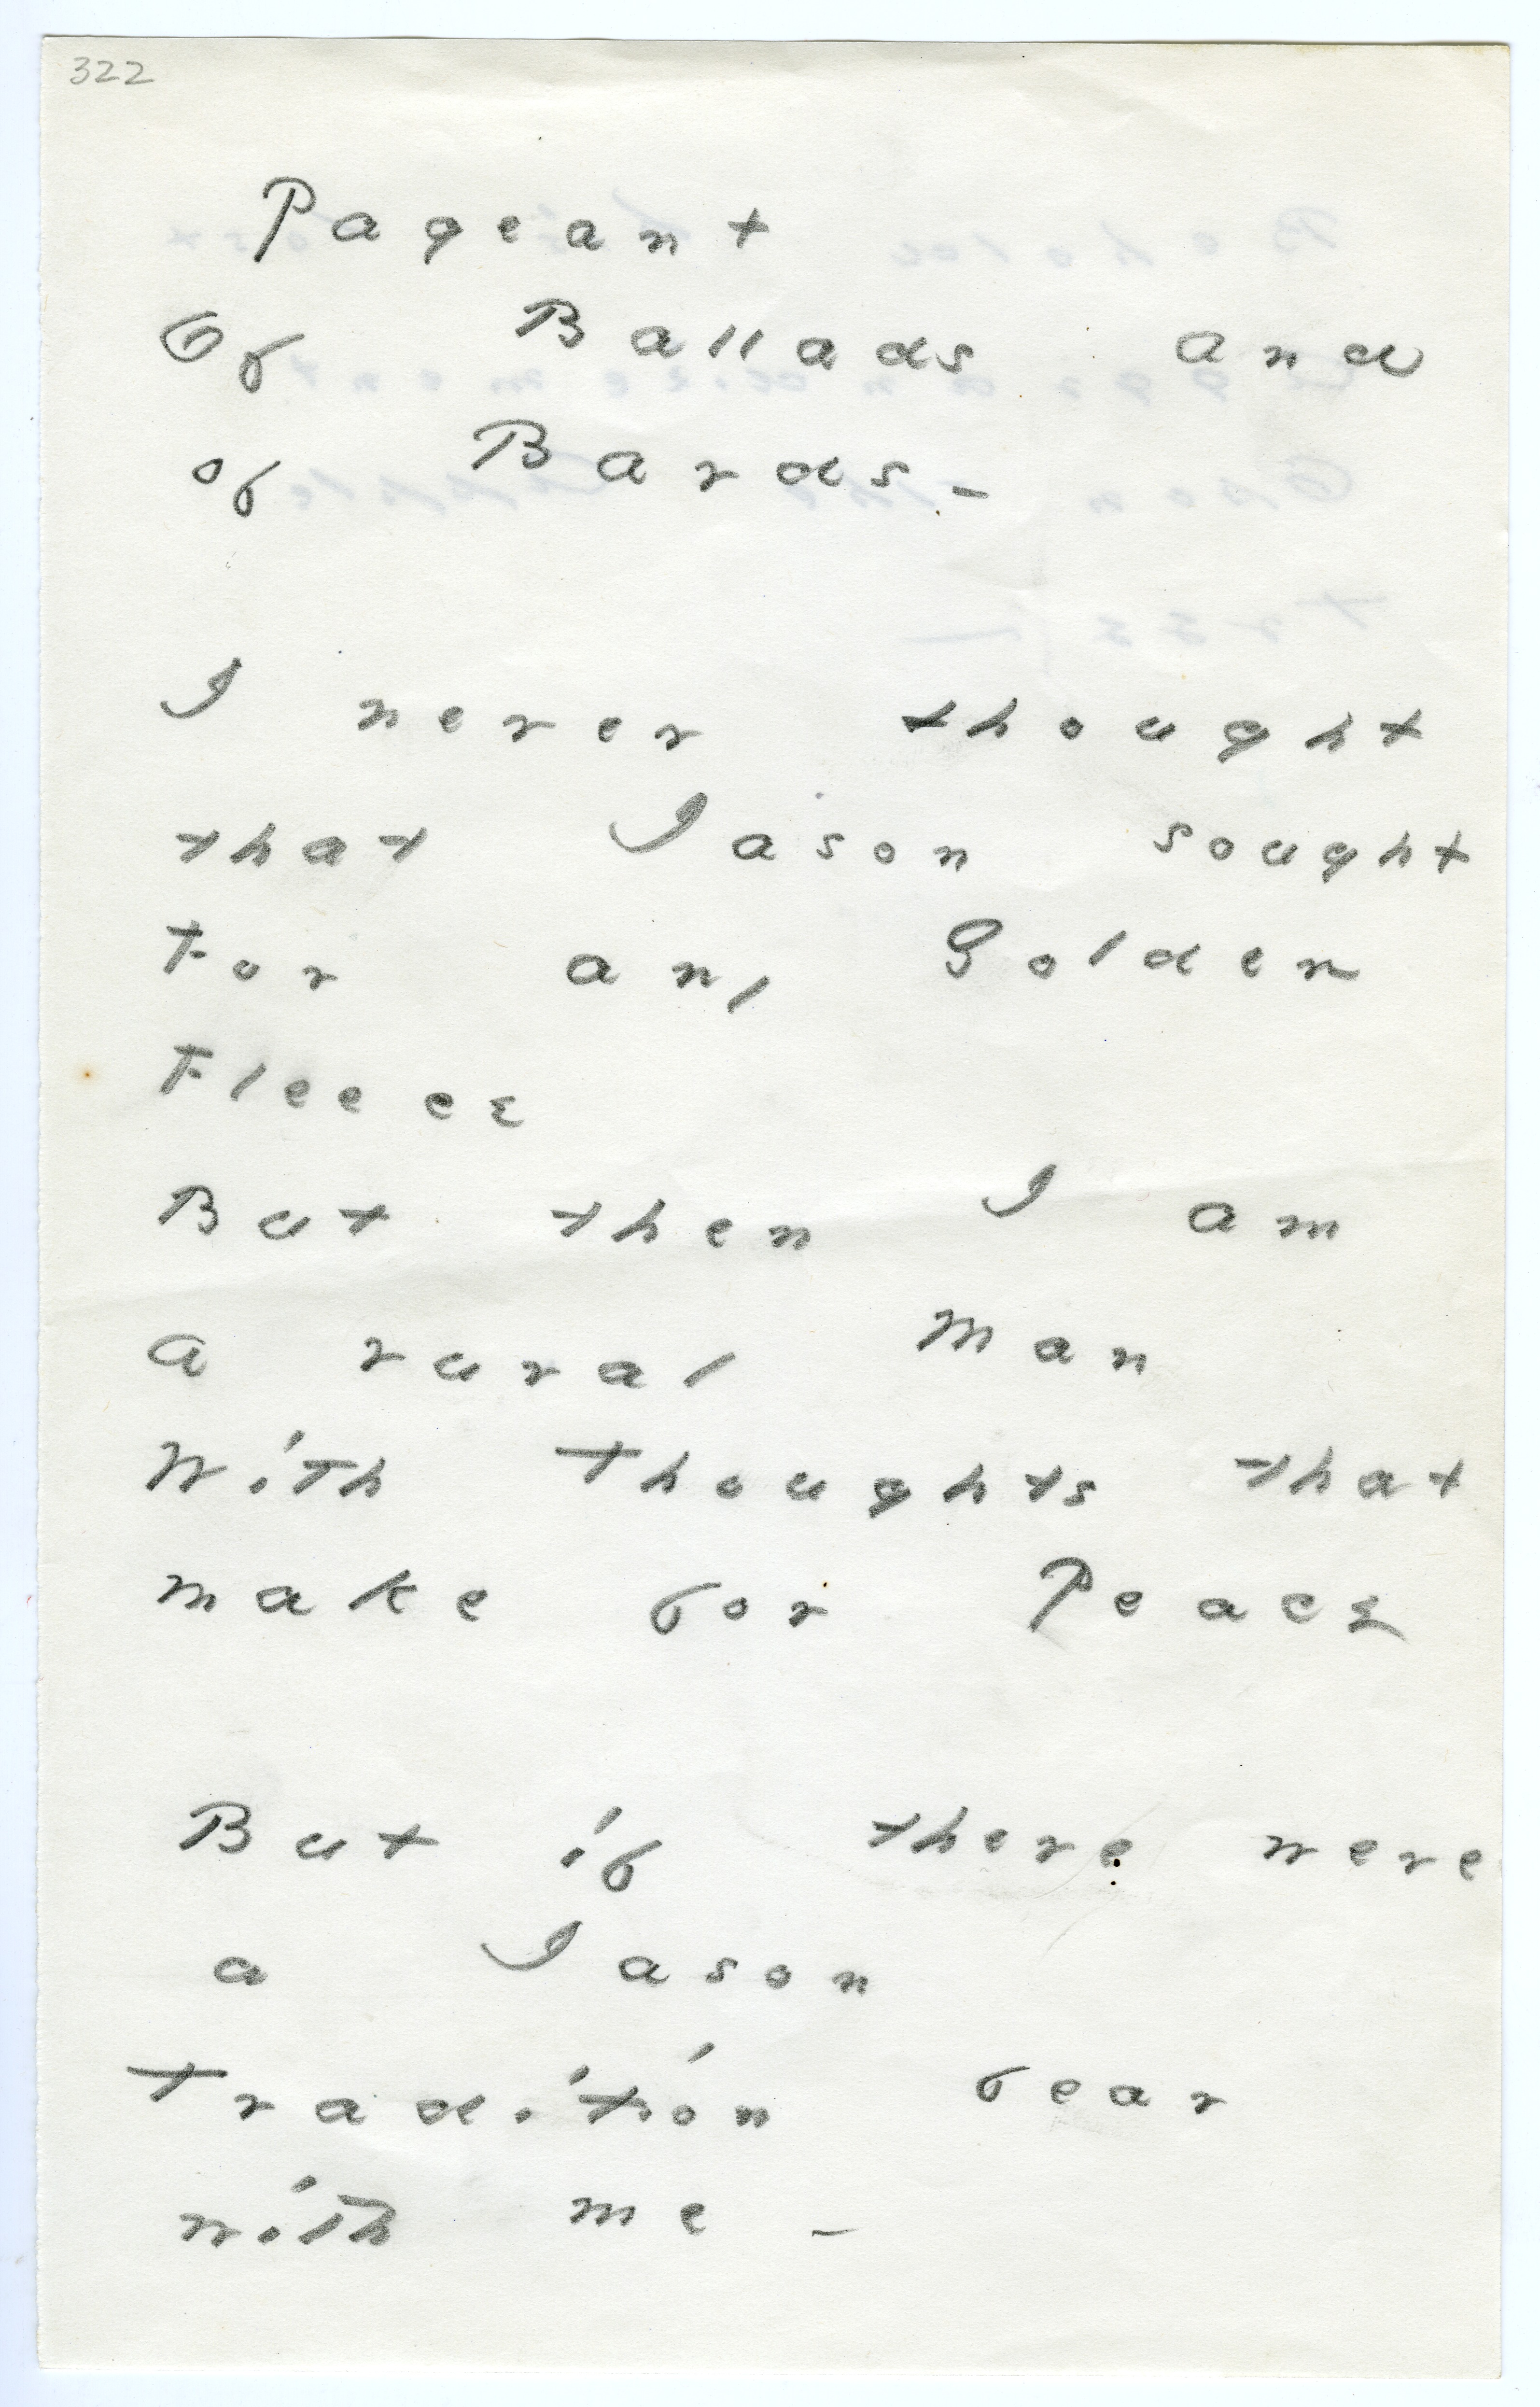 322
Pageant
Of Ballads and
of Bards-
I never thought
that Jason sought
For any Golden
Fleece
But then I am
a rural Man
With Thoughts that
make for Peace
But if there were
a Jason
Tradition fear
with me -